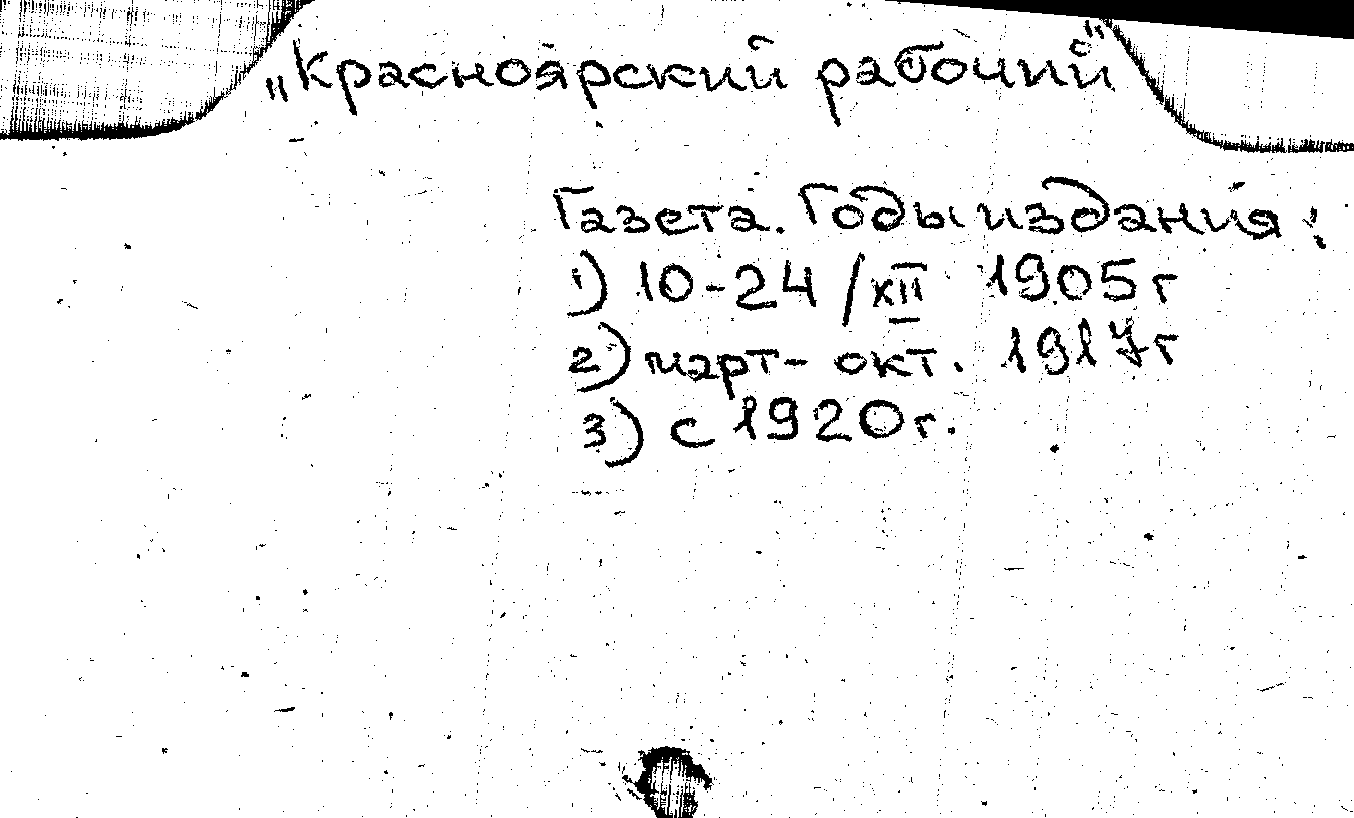 „Красноярский рабочий"
Газета. Годы издания:
1) 10-24/XII 1905 г
2) март - окт. 1917 г
3) с 1920 г.